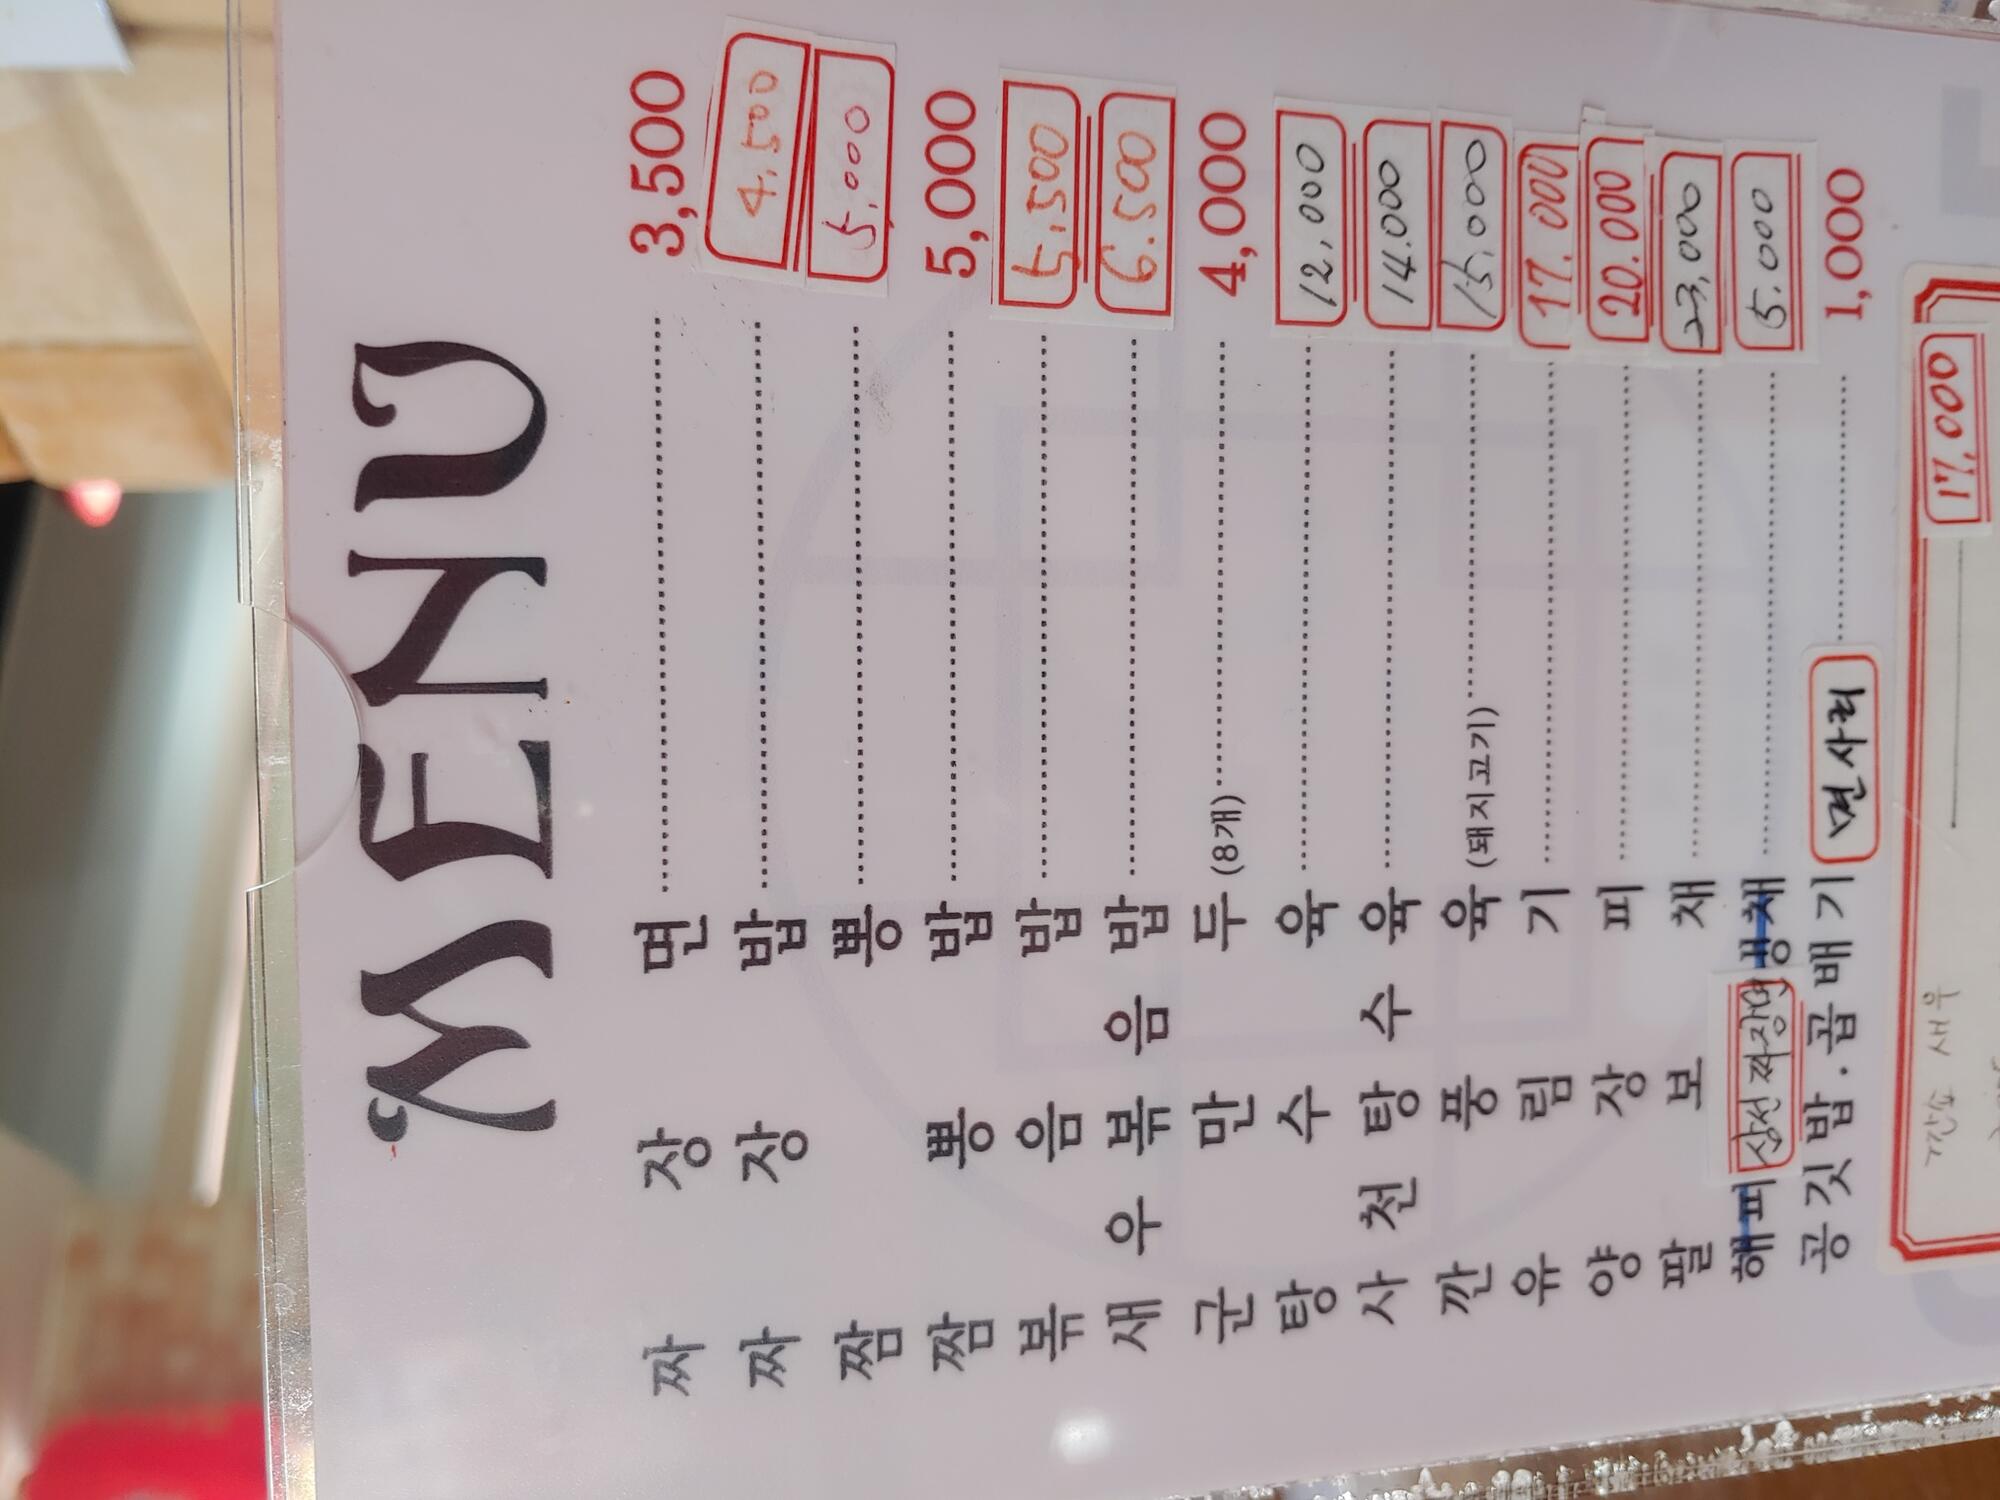 MENU
짜장면 3,500
짜장밥 4.500
짬뽕 5.000
짬뽕밥 5,000
볶음밥 5.500
새우볶음밥 6.500
군만두(8개) 4,000
탕수육 12.000
사천탕수육 14.000
깐풍육(돼지고기) 15.000
유림기 17.000
양장피 20.000
팔보채 23,000
해피 삼선짜장면 냉채 5.000
공깃밥.곱배기 면사리 1,000
깐쇼 새우 17.000